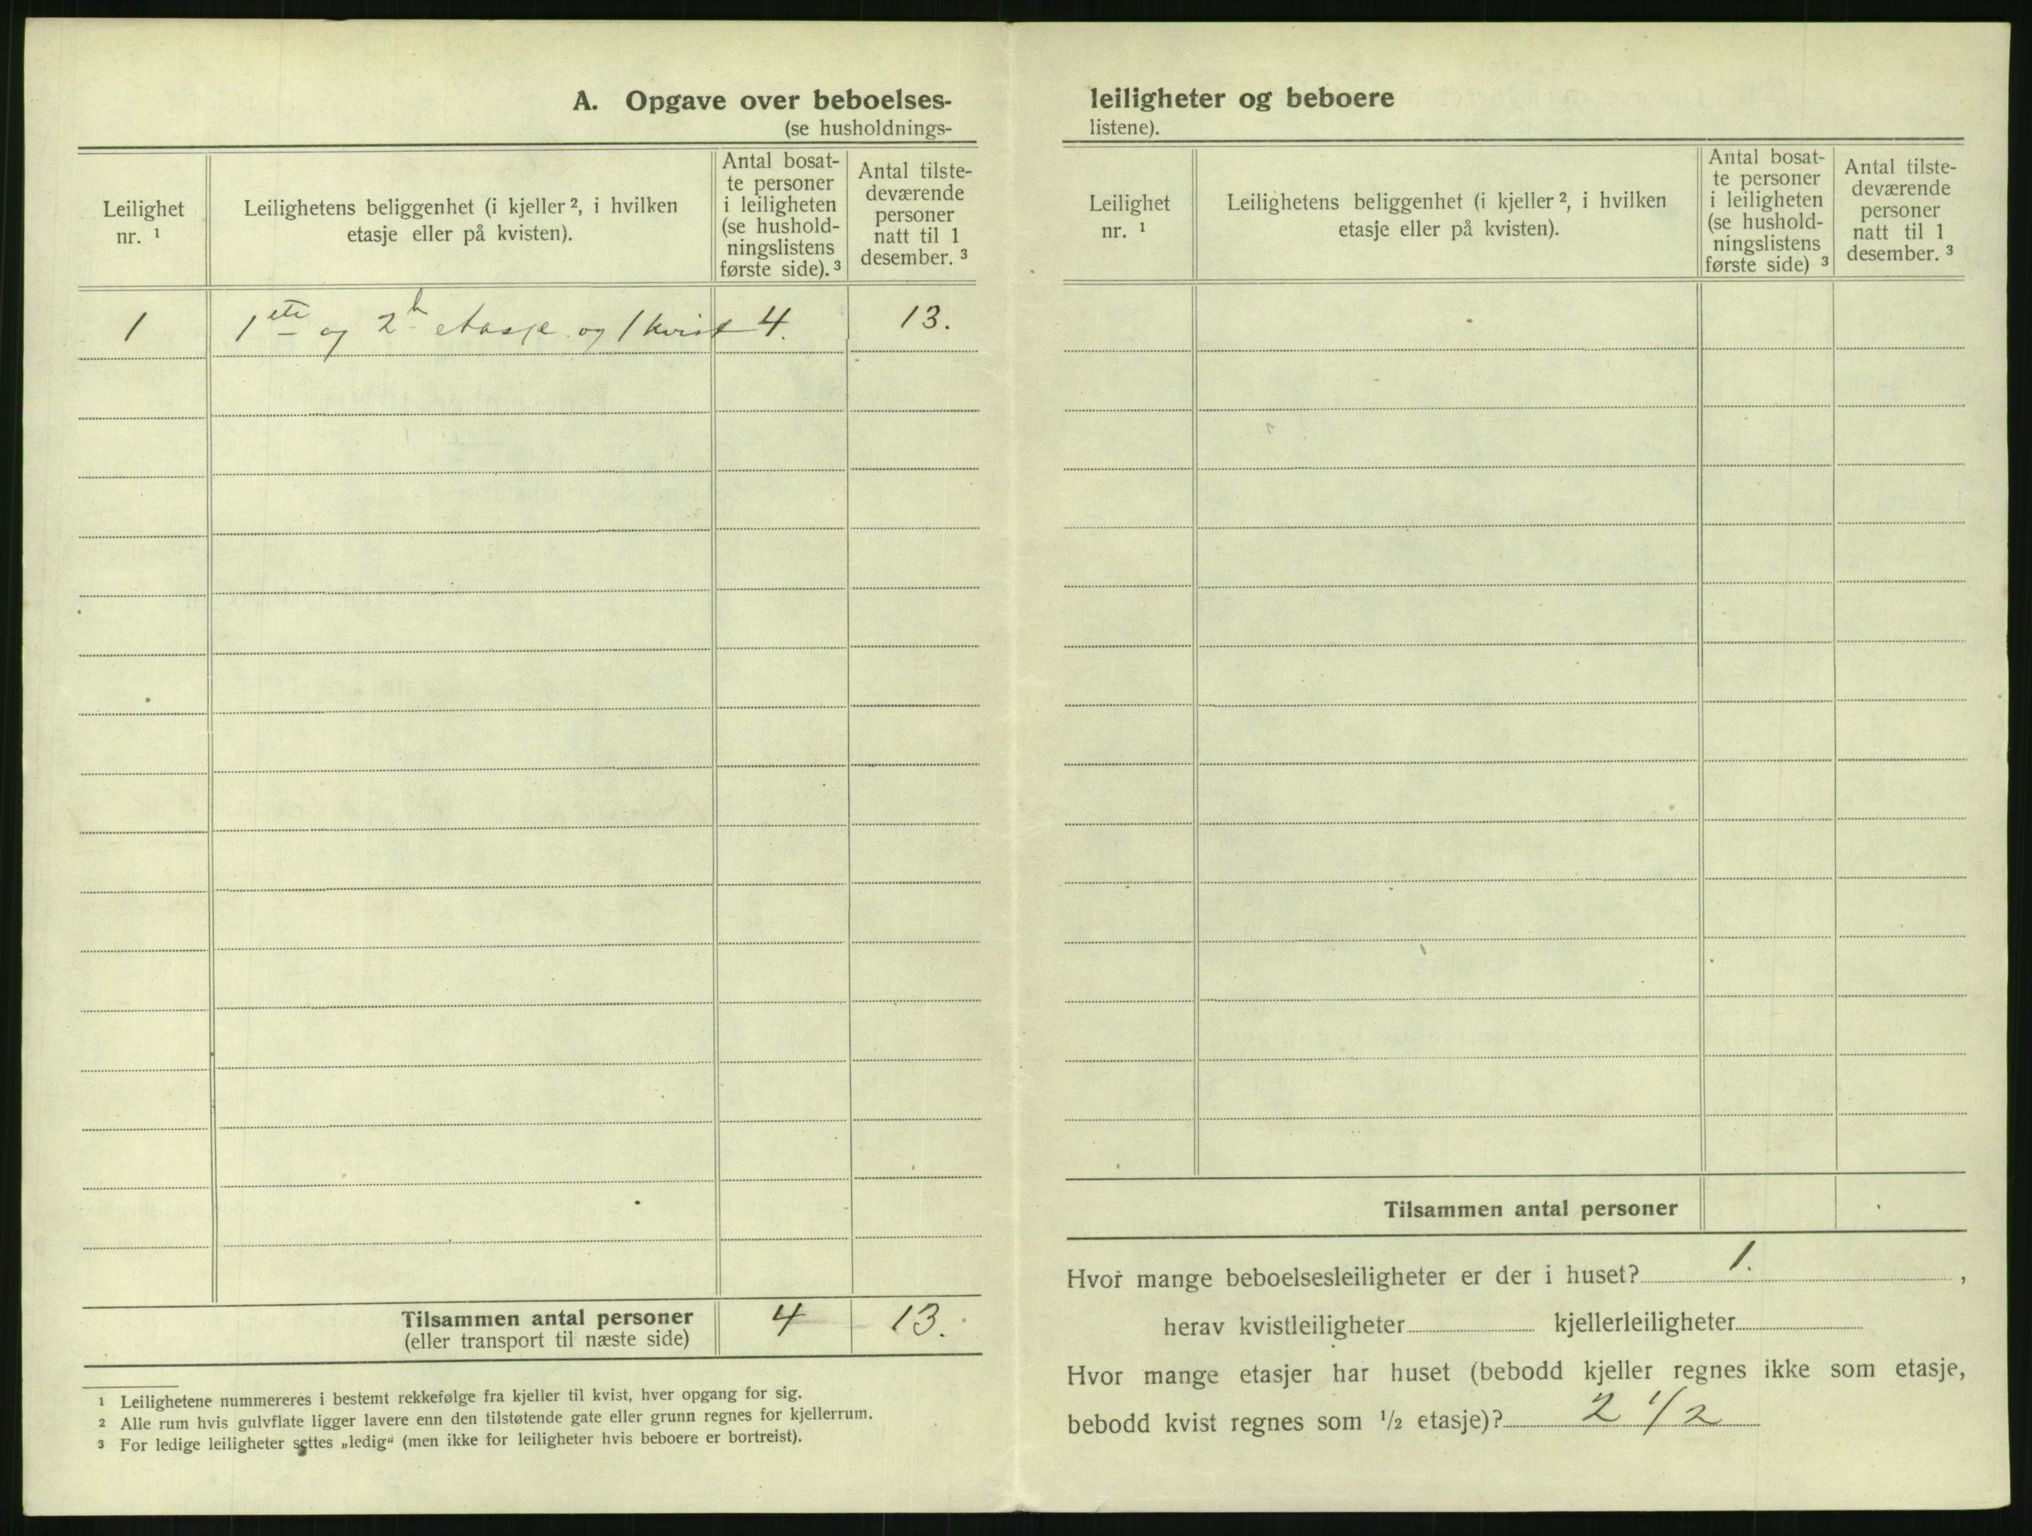 A. Opgave over beboelses-
(se husholdnings-
Leilighet
nr. ¹
Leilighetens beliggenhet (i kjeller ², i hvilken
etasje eller på kvisten).
Antal bosat-
te personer
i leiligheten
(se hushold-
ningslistens
første side). ³
Antal tilste-
deværende
personer
natt til 1
desember. ³
1 1ste og etasje og 1 kvist 4. 13.
Tilsammen antal personer 4 13.
(eller transport til næste side)
¹ Leilighetene nummereres i bestemt rekkefølge fra kjeller til kvist, hver opgang for sig.
² Alle rum hvis gulvflate ligger lavere enn den tilstøtende gate eller grunn regnes for kjellerrum.
³ For ledige leiligheter settes „ledig“ (men ikke for leiligheter hvis beboere er bortreist).
leiligheter og beboere
listene).
Leilighet
nr. ¹
Leilighetens beliggenhet (i kjeller ², i hvilken
etasje eller på kvisten).
Antal bosat-
te personer
i leiligheten
(se hushold-
ningslistens
første side) ³
Antal tilste-
deværende
personer
natt til 1
desember. ³
Tilsammen antal personer
Hvor mange beboelsesleiligheter er der i huset? 1. ,
herav kvistleiligheter kjellerleiligheter
Hvor mange etasjer har huset (bebodd kjeller regnes ikke som etasje,
bebodd kvist regnes som ½ etasje)? 2 1/2